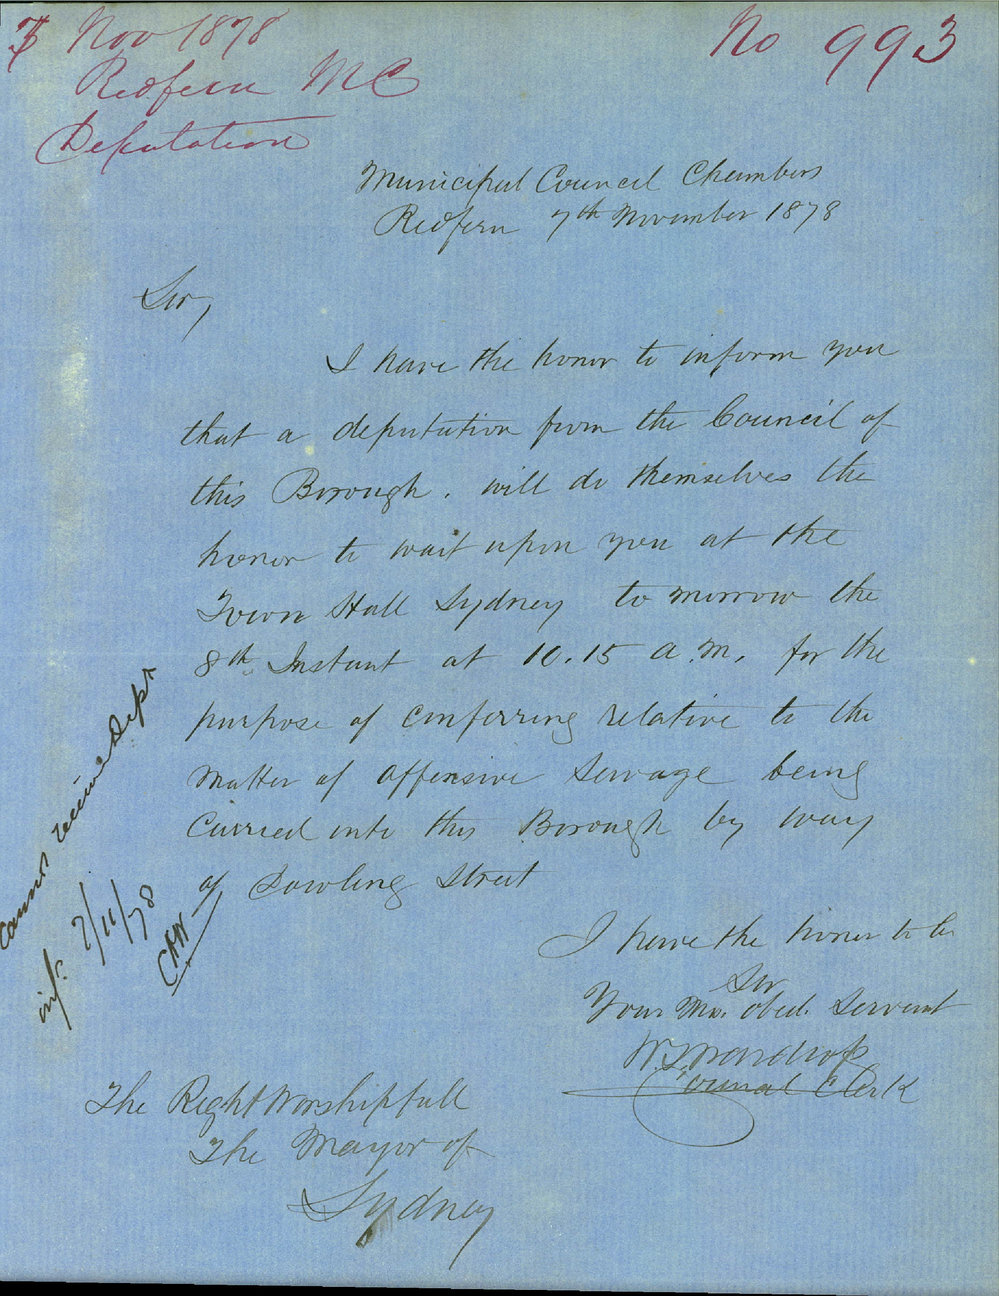 7 Nov 1878
Redfern M C
Deputation
No 993
Municipal Council Chambers
Redfern 7th November 1878
Sir,
I have the honor to inform you
that a deputation from the Council of
this Borough. will do themselves the
honor to wait upon you at the
Town Hall Sydney to morrow the
8th Instant at 10.15 a.m. for the
purpose of conferring relative to the
matter of offensive sewage being
carried into this Borough by way
of Dowling Street
I have the honor to be
Sir
Your Mo. obed. Servant
W. Wardrop
Council Clerk
The Right Worshipfull
The Mayor of
Sydney
Cannot receive Dept
infr. 7/11/78